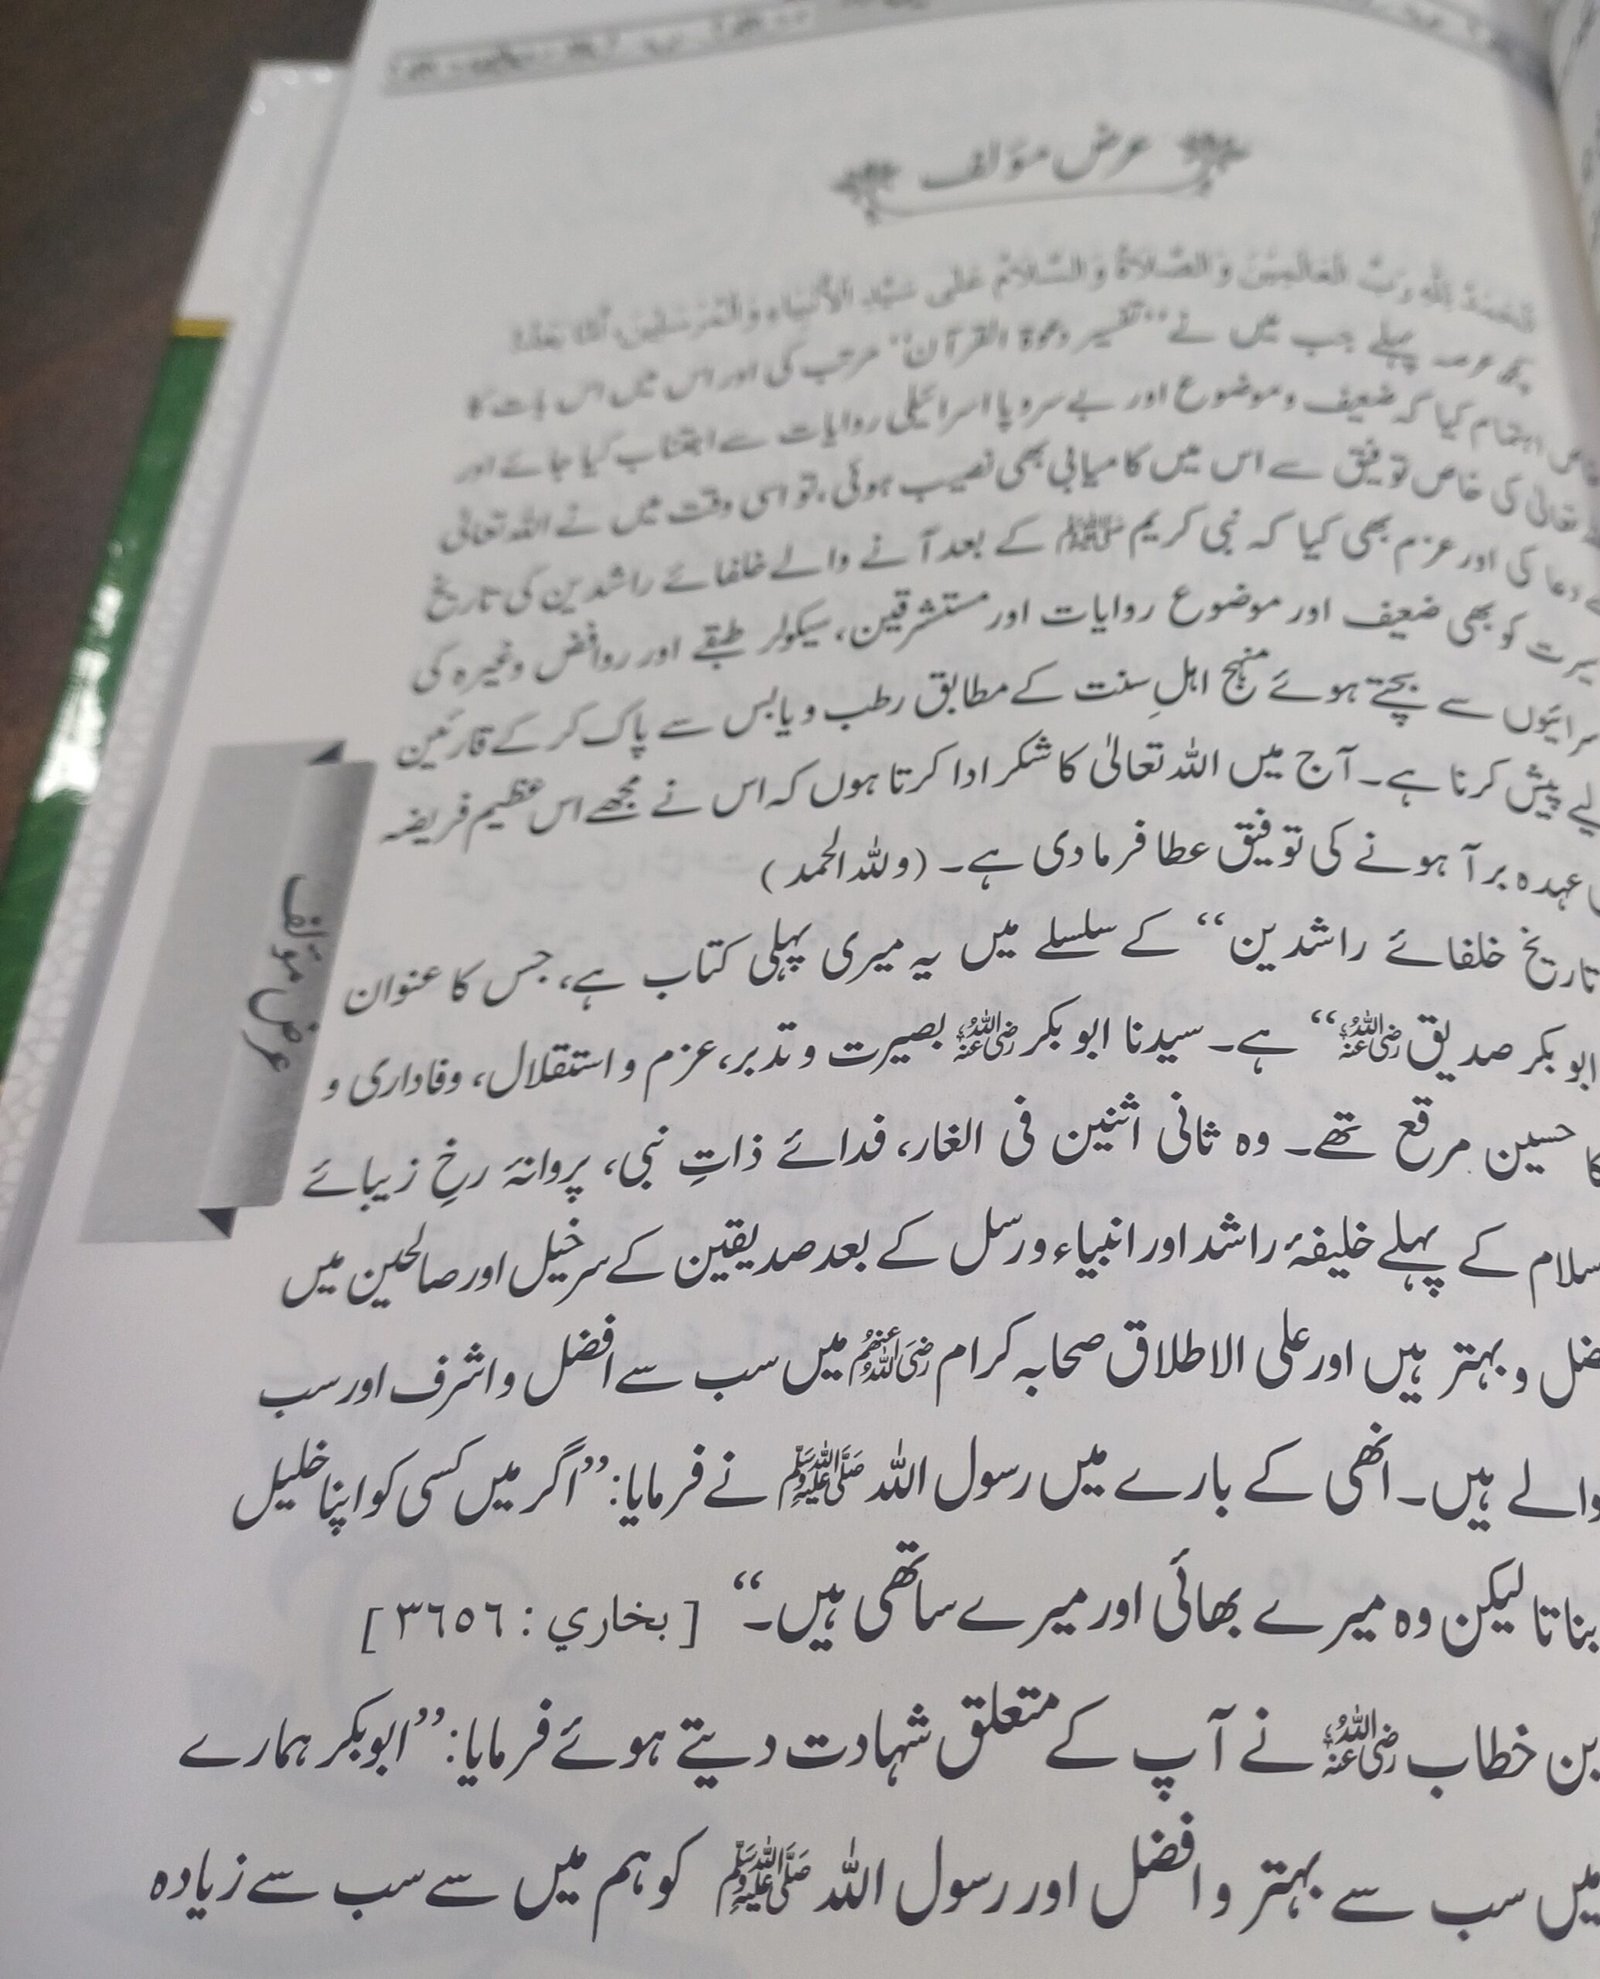 عرض مؤلف
الحمد لله رب العالمين والصلاة والسلام على سيد الأنبياء والمرسلين، أما بعد!
کچھ عرصہ پہلے جب میں نے ”تفسیر دعوۃ القرآن“ مرتب کی اور اس میں اس بات کا
اہتمام کیا کہ ضعیف و موضوع اور بے سروپا اسرائیلی روایات سے اجتناب کیا جائے اور
تعالیٰ کی خاص توفیق سے اس میں کامیابی بھی نصیب ہوئی، تو اسی وقت میں نے اللہ تعالیٰ
دعا کی اور عزم بھی کیا کہ نبی کریم ﷺ کے بعد آنے والے خلفائے راشدین کی تاریخ
کو بھی ضعیف اور موضوع روایات اور مستشرقین، سیکولر طبقے اور روافض وغیرہ کی
سے بچتے ہوئے منہج اہلِ سنت کے مطابق رطب و یابس سے پاک کر کے قارئین
لیے پیش کرنا ہے۔ آج میں اللہ تعالیٰ کا شکر ادا کرتا ہوں کہ اس نے مجھے اس عظیم فریضہ
عہدہ برآ ہونے کی توفیق عطا فرما دی ہے۔ (وللہ الحمد)
تاریخ خلفائے راشدین“ کے سلسلے میں یہ میری پہلی کتاب ہے، جس کا عنوان
ابوبکر صدیق رضی اللہ عنہ“ ہے۔ سیدنا ابوبکر رضی اللہ عنہ بصیرت و تدبر، عزم و استقلال، وفاداری و
کا حسین مرقع تھے۔ وہ ثانی اثنین فی الغار، فدائے ذاتِ نبی، پروانۂ رخِ زیبائے
سلام کے پہلے خلیفۂ راشد اور انبیاء و رسل کے بعد صدیقین کے سرخیل اور صالحین میں
ضل و بہتر ہیں اور علی الاطلاق صحابہ کرام رضی اللہ عنہم میں سب سے افضل و اشرف اور سب
والے ہیں۔ انھی کے بارے میں رسول اللہ ﷺ نے فرمایا: ”اگر میں کسی کو اپنا خلیل
بناتا لیکن وہ میرے بھائی اور میرے ساتھی ہیں۔“ [بخاري : ٣٦٥٦]
بن خطاب رضی اللہ عنہ نے آپ کے متعلق شہادت دیتے ہوئے فرمایا: ”ابوبکر ہمارے
میں سب سے بہتر و افضل اور رسول اللہ ﷺ کو ہم میں سے سب سے زیادہ
عرض مؤلف